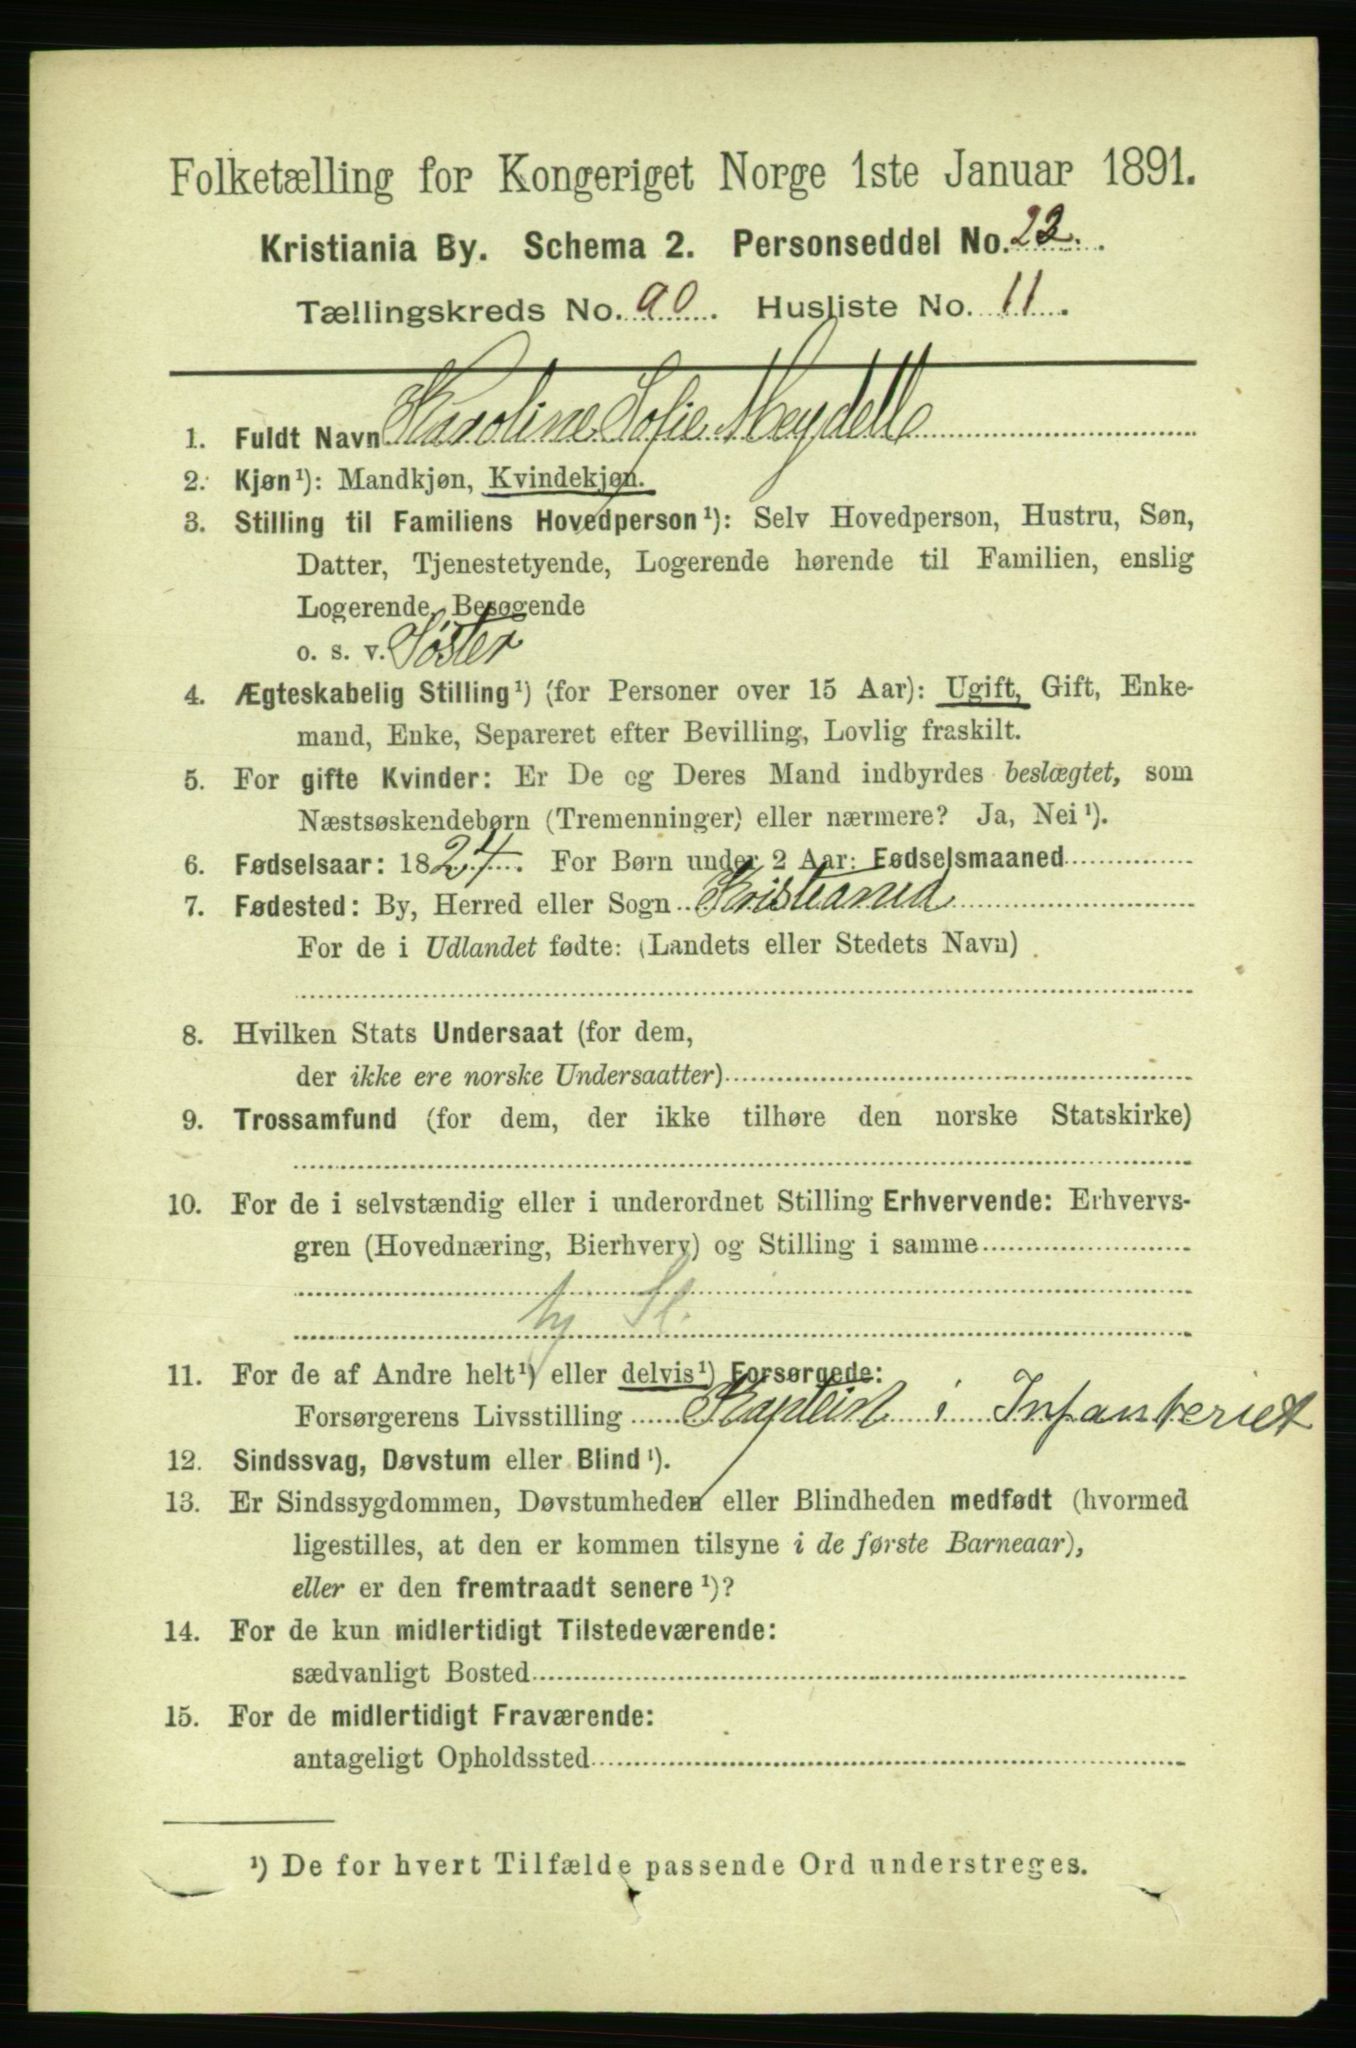 Folketælling for Kongeriget Norge 1ste Januar 1891.
Kristiania By. Schema 2. Personseddel No. 22.
Tællingskreds No. 90. Husliste No. 11.
1. Fuldt Navn Karoline Sofie Meydell
2. Kjøn¹): Mandkjøn, Kvindekjøn.
3. Stilling til Familiens Hovedperson¹): Selv Hovedperson, Hustru, Søn,
Datter, Tjenestetyende, Logerende hørende til Familien, enslig
Logerende, Besøgende
o. s. v. Søster
4. Ægteskabelig Stilling¹) (for Personer over 15 Aar): Ugift, Gift, Enke-
mand, Enke, Separeret efter Bevilling, Lovlig fraskilt.
5. For gifte Kvinder: Er De og Deres Mand indbyrdes beslægtet, som
Næstsøskendebørn (Tremenninger) eller nærmere? Ja, Nei¹).
6. Fødselsaar: 1824. For Børn under 2 Aar: Fødselsmaaned
7. Fødested: By, Herred eller Sogn Kristiania
For de i Udlandet fødte: (Landets eller Stedets Navn)
8. Hvilken Stats Undersaat (for dem,
der ikke ere norske Undersaatter)
9. Trossamfund (for dem, der ikke tilhøre den norske Statskirke)
10. For de i selvstændig eller i underordnet Stilling Erhvervende: Erhvervs-
gren (Hovednæring, Bierhverv) og Stilling i samme
11. For de af Andre helt¹) eller delvis¹) Forsørgede:
Forsørgerens Livsstilling Kaptein i Infanteriet
12. Sindssvag, Døvstum eller Blind¹).
13. Er Sindssygdommen, Døvstumheden eller Blindheden medfødt (hvormed
ligestilles, at den er kommen tilsyne i de første Barneaar),
eller er den fremtraadt senere¹)?
14. For de kun midlertidigt Tilstedeværende:
sædvanligt Bosted
15. For de midlertidigt Fraværende:
antageligt Opholdssted
¹) De for hvert Tilfælde passende Ord understreges.